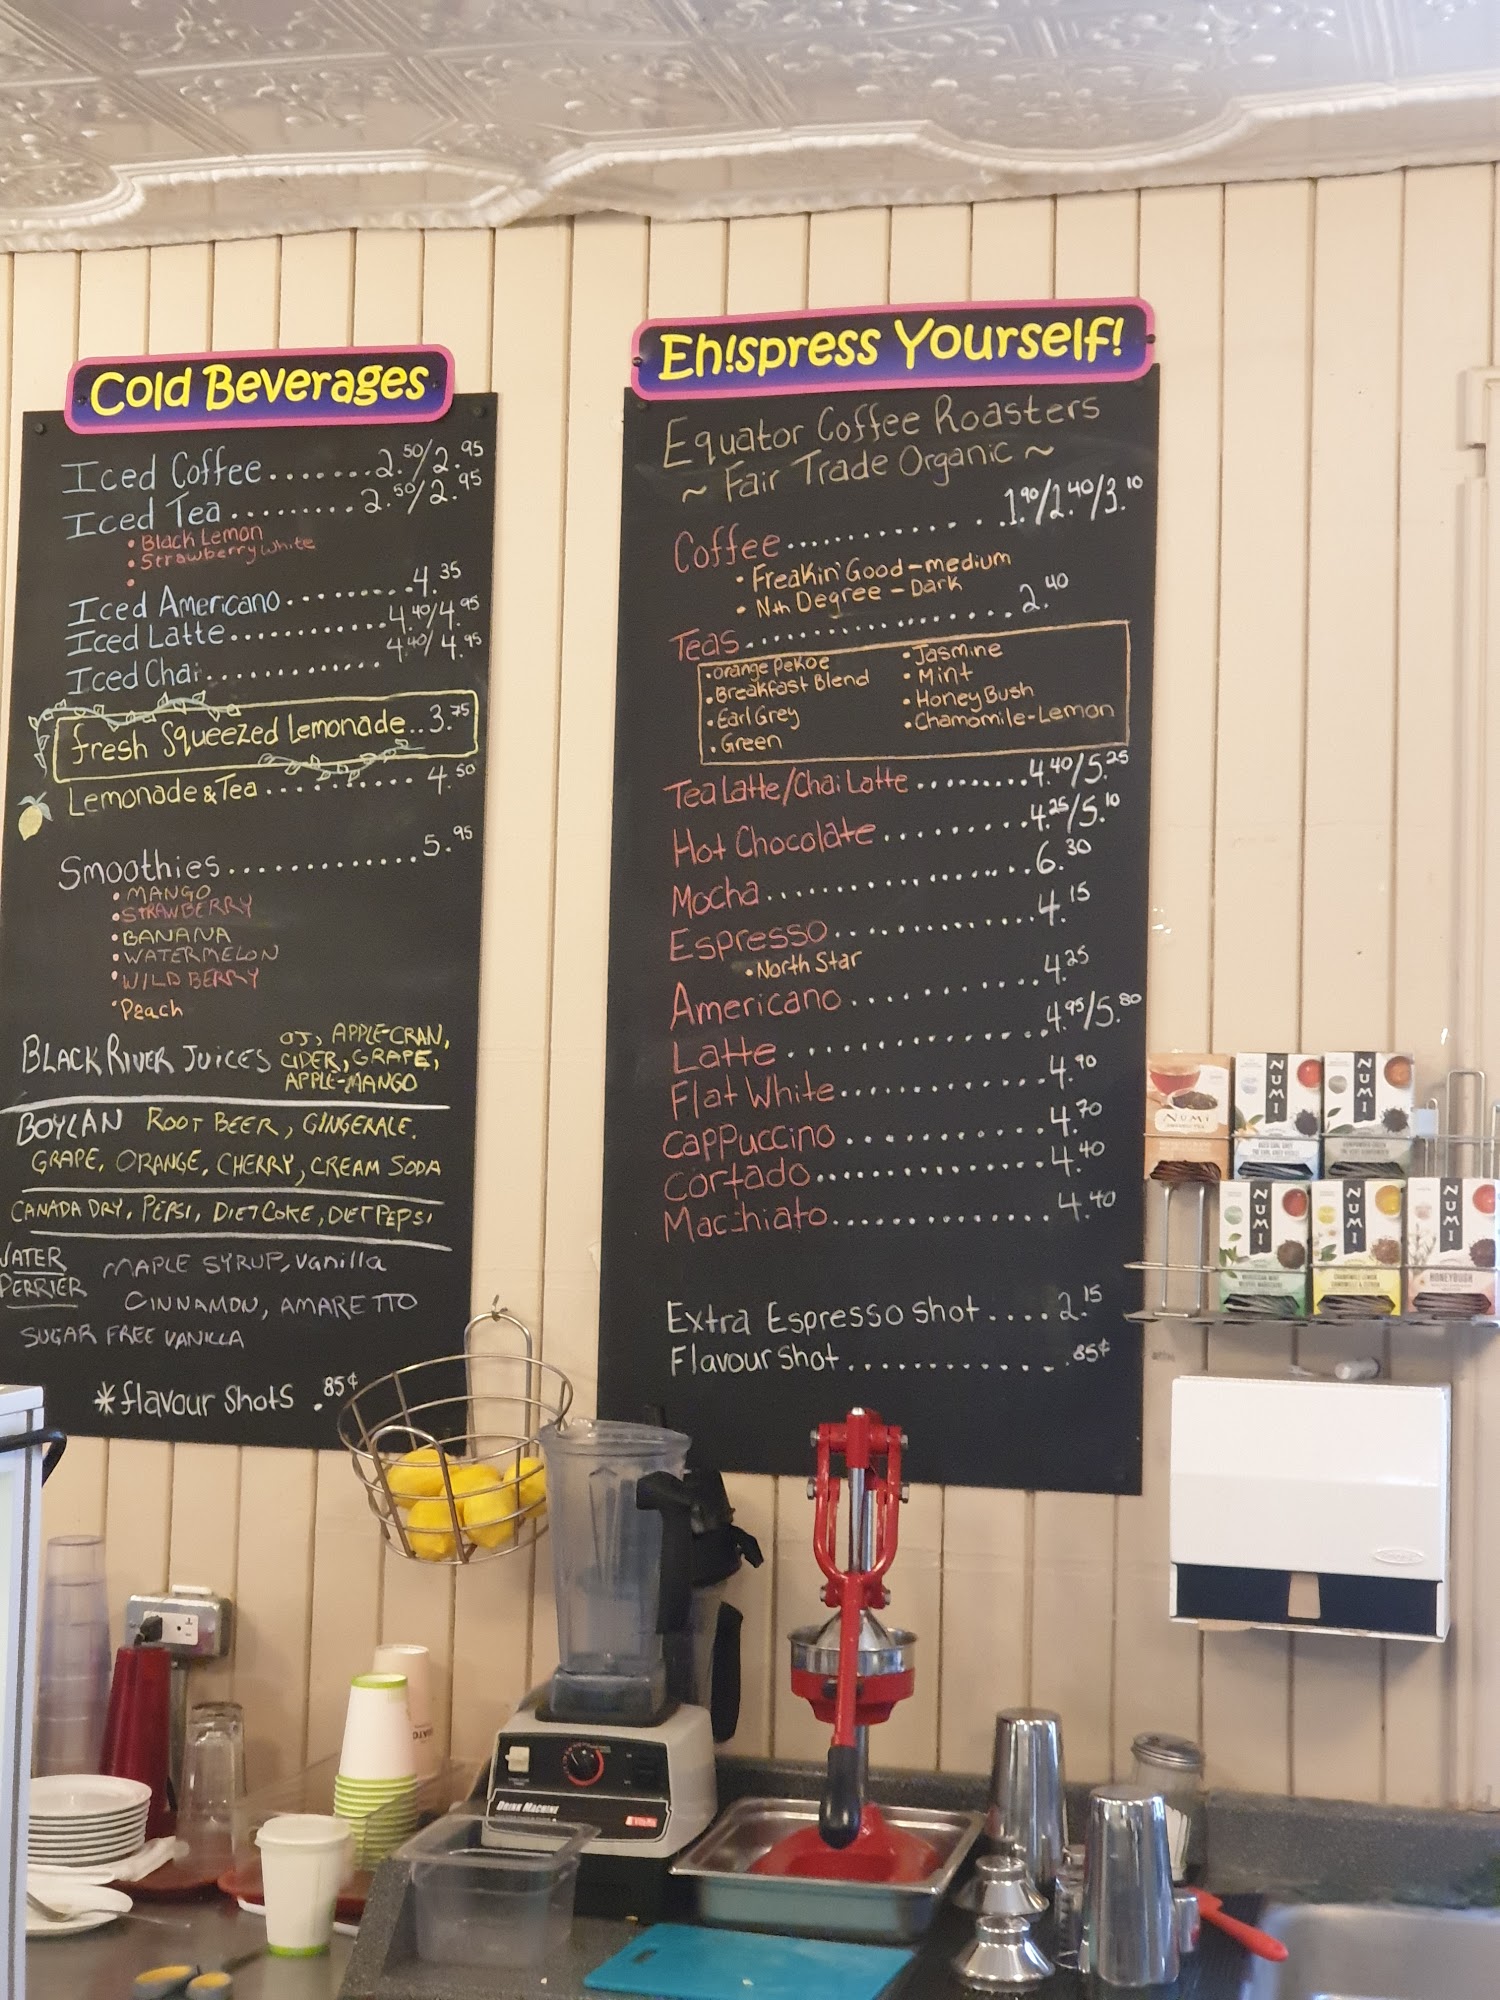 Cold Beverages
Iced Coffee.......2.50/2.95
Iced Tea.........2.50/2.95
• Black Lemon
• Strawberry White
•
Iced Americano........4.35
Iced Latte............4.40/4.95
Iced Chai............4.40/4.95
fresh Squeezed Lemonade..3.75
Lemonade & Tea..........4.50
Smoothies.............5.95
• MANGO
• STRAWBERRY
• BANANA
• WATERMELON
• WILD BERRY
• Peach
BLACK RIVER JUICES OJ, APPLE-CRAN,
CIDER, GRAPE,
APPLE-MANGO
BOYLAN ROOT BEER, GINGERALE.
GRAPE, ORANGE, CHERRY, CREAM SODA
CANADA DRY, PEPSI, DIET COKE, DIET PEPSI
WATER
PERRIER
MAPLE SYRUP, vanilla
CINNAMON, AMARETTO
SUGAR FREE VANILLA
*flavour shots .85¢
Eh!spress Yourself!
Equator Coffee Roasters
~ Fair Trade Organic ~
Coffee............1.90/2.40/3.10
• Freakin' Good - medium
• Nth Degree - Dark
Teas................2.40
• Orange Pekoe
• Breakfast Blend
• Earl Grey
• Green
• Jasmine
• Mint
• Honey Bush
• Chamomile-Lemon
Tea Latte/Chai Latte.........4.40/5.25
Hot Chocolate...........4.25/5.10
Mocha..................6.30
Espresso..............4.15
• North Star
Americano............4.25
Latte................4.95/5.80
Flat White.............4.90
Cappuccino............4.70
Cortado..............4.40
Macchiato..............4.40
Extra Espresso shot....2.15
Flavour shot............85¢
NUMI
NUMI
NUMI
NUMI
NUMI
NUMI
HONEYBUSH
DRINK MACHINE